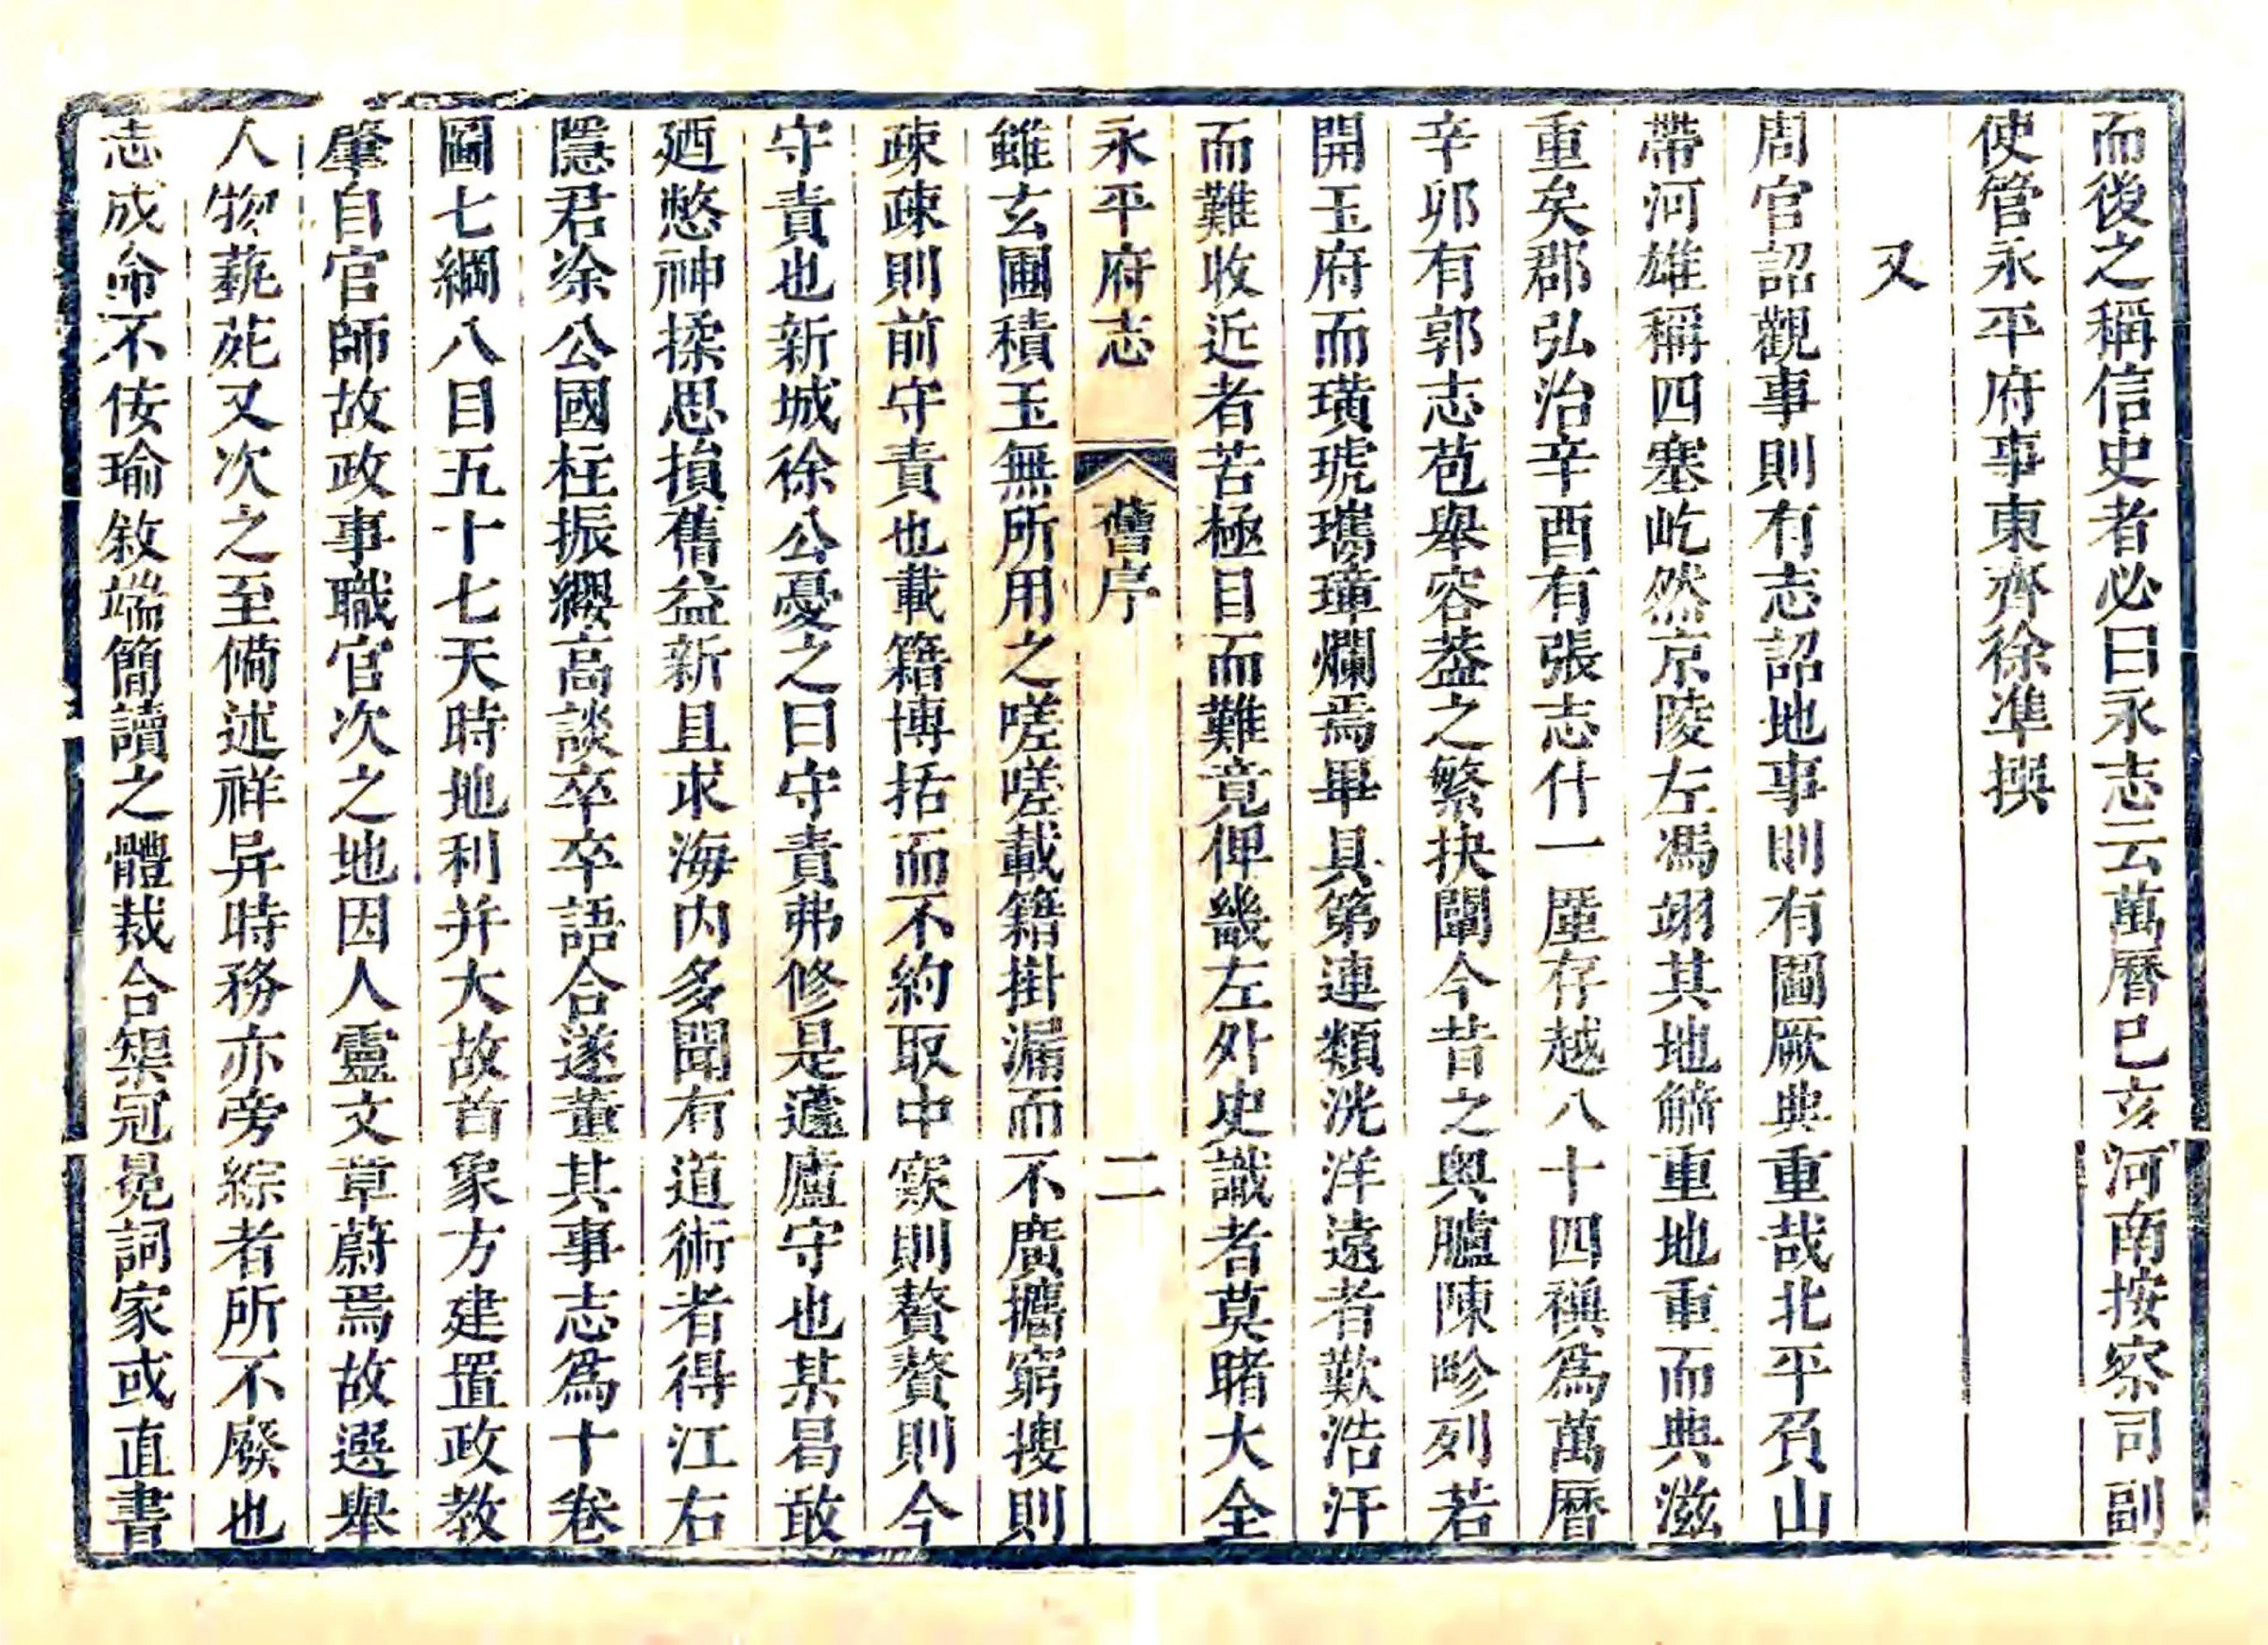 而後之稱信史者必曰永志云萬曆已亥河南按察司副
使管永平府事東齊徐準撰
又
周官詔觀事則有志詔地事則有圖厥典重哉北平負山
帶河雄稱四塞屹然京陵左馮翊其地觭重地重而典滋
重矣郡弘治辛酉有張志什一廑存越八十四禩為萬曆
辛卯有郭志苞舉容葢之繁抉闡今昔之奥臚陳畛列若
開玉府而璜琥瓗璋爛焉畢具第連類洸洋遠者歎浩汗
而難收近者苦極目而難竟俾畿左外史識者莫睹大全
永平府志
舊序
二
雖玄圃積玉無所用之嗟嗟載籍掛漏而不廣攟窮搜則
疎疎則前守責也載籍博括而不約取中窾則贅贅則今
守責也新城徐公憂之曰守責弗修是蘧廬守也某曷敢
廼憗神揉思損舊益新且求海内多聞有道術者得江右
隱君凃公國柱振纓高談卒卒語合遂董其事志為十卷
圖七綱八目五十七天時地利并大故首象方建置政教
肇自官師故政事職官次之地因人靈文章蔚焉故選舉
人物藝苑又次之至備述祥异時務亦旁綜者所不廢也
志成命不佞瑜敘端簡讀之體裁合榘冠冕詞家或直書